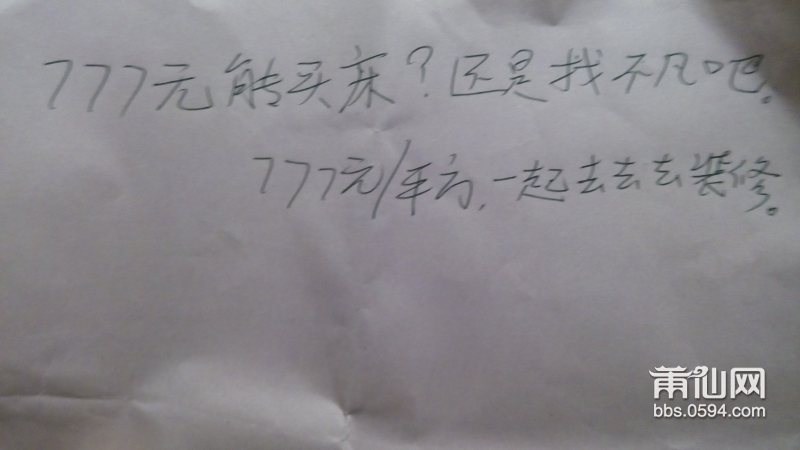 777元能买床？还是找不凡吧。
777元/平方，一起去去去装修。
莆仙网
bbs.0594.com